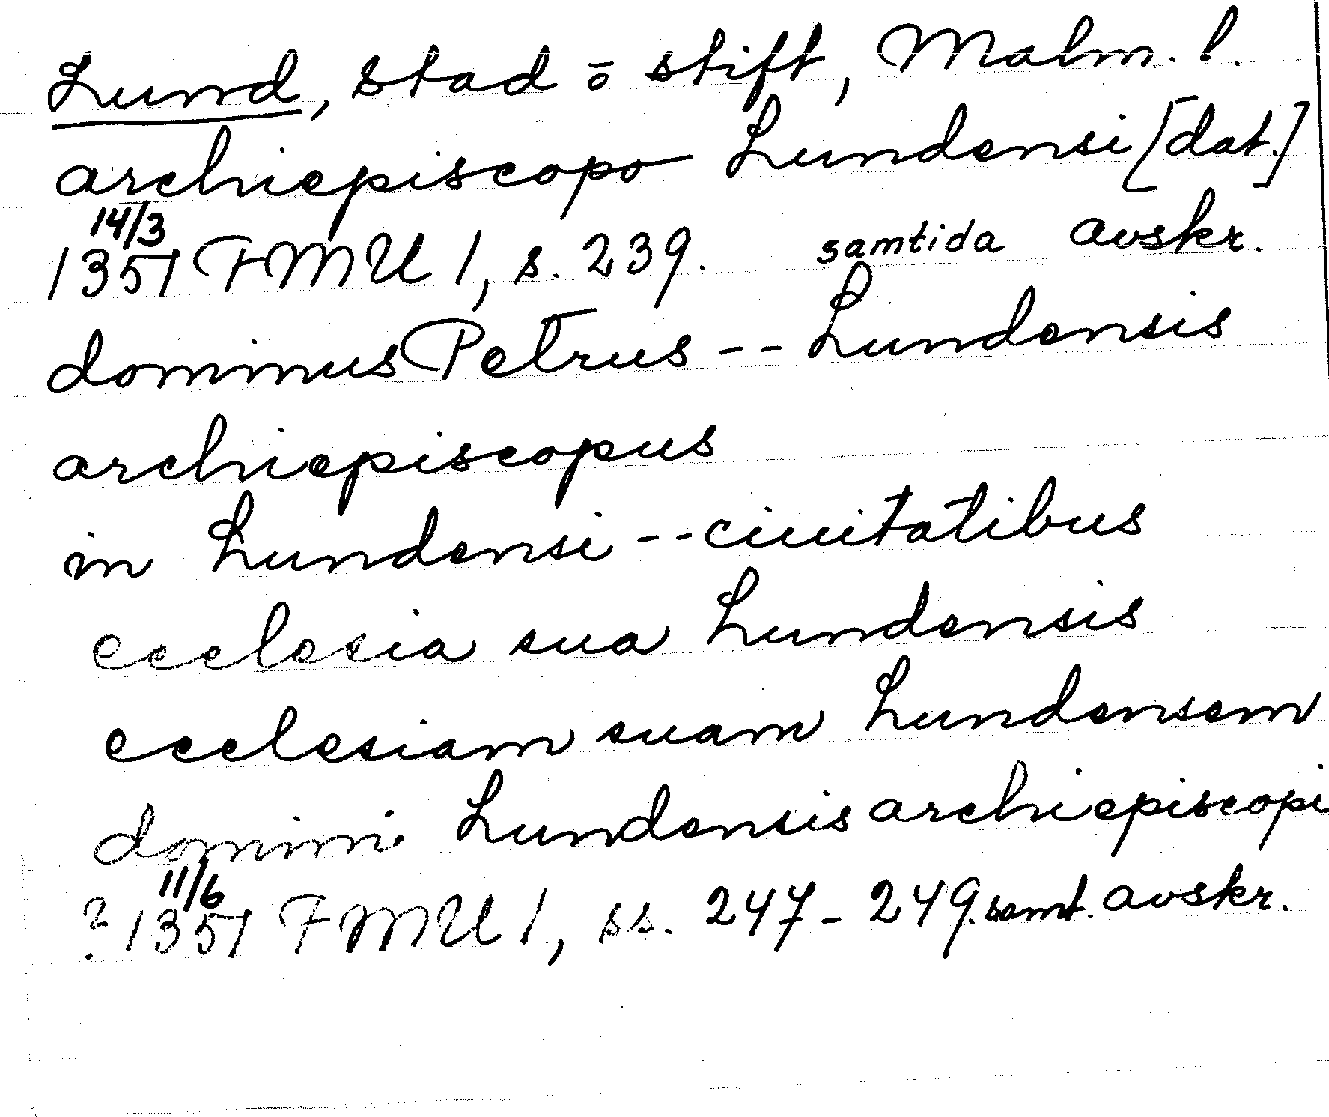 Lund, stad o stift, Malm. l.
archiepiscopo Lundensi [dat.]
14/3
1351 FMU 1, s. 239. samtida avskr.
dominus Petrus -- Lundensis
archiepiscopus
in Lundensi -- ciuitatibus
ecclesia sua Lundensis
ecclesiam suam Lundensem
domini Lundensis archiepiscopi
11/6
? 1351 FMU 1, ss. 247-249. samt. avskr.